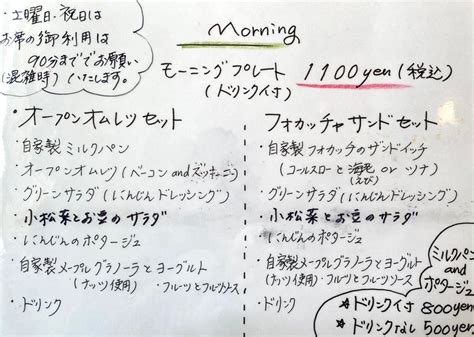 ・土曜日・祝日は
お席の御利用は
90分まででお願い
(混雑時) いたします。
Morning
モーニングプレート 1100yen(税込)
(ドリンク付)
・オープンオムレツセット
・自家製ミルクパン
・オープンオムレツ(ベーコンandズッキーニ)
・グリーンサラダ(にんじんドレッシング)
・小松菜とお豆のサラダ
・にんじんのポタージュ
・自家製メープルグラノーラとヨーグルト
(ナッツ使用) ・フルーツとフルーツソース
・ドリンク
フォカッチャサンドセット
・自家製フォカッチのサンドイッチ
(コールスローと海老orツナ)
(えび)
・グリーンサラダ(にんじんドレッシング)
・小松菜とお豆のサラダ
・にんじんのポタージュ
・自家製メープルグラノーラとヨーグルト
(ナッツ使用)・フルーツとフルーツソース
・ドリンク
ミルクパン
and
ポタージュ
★ドリンク付 800yen
★ドリンクなし 500yen